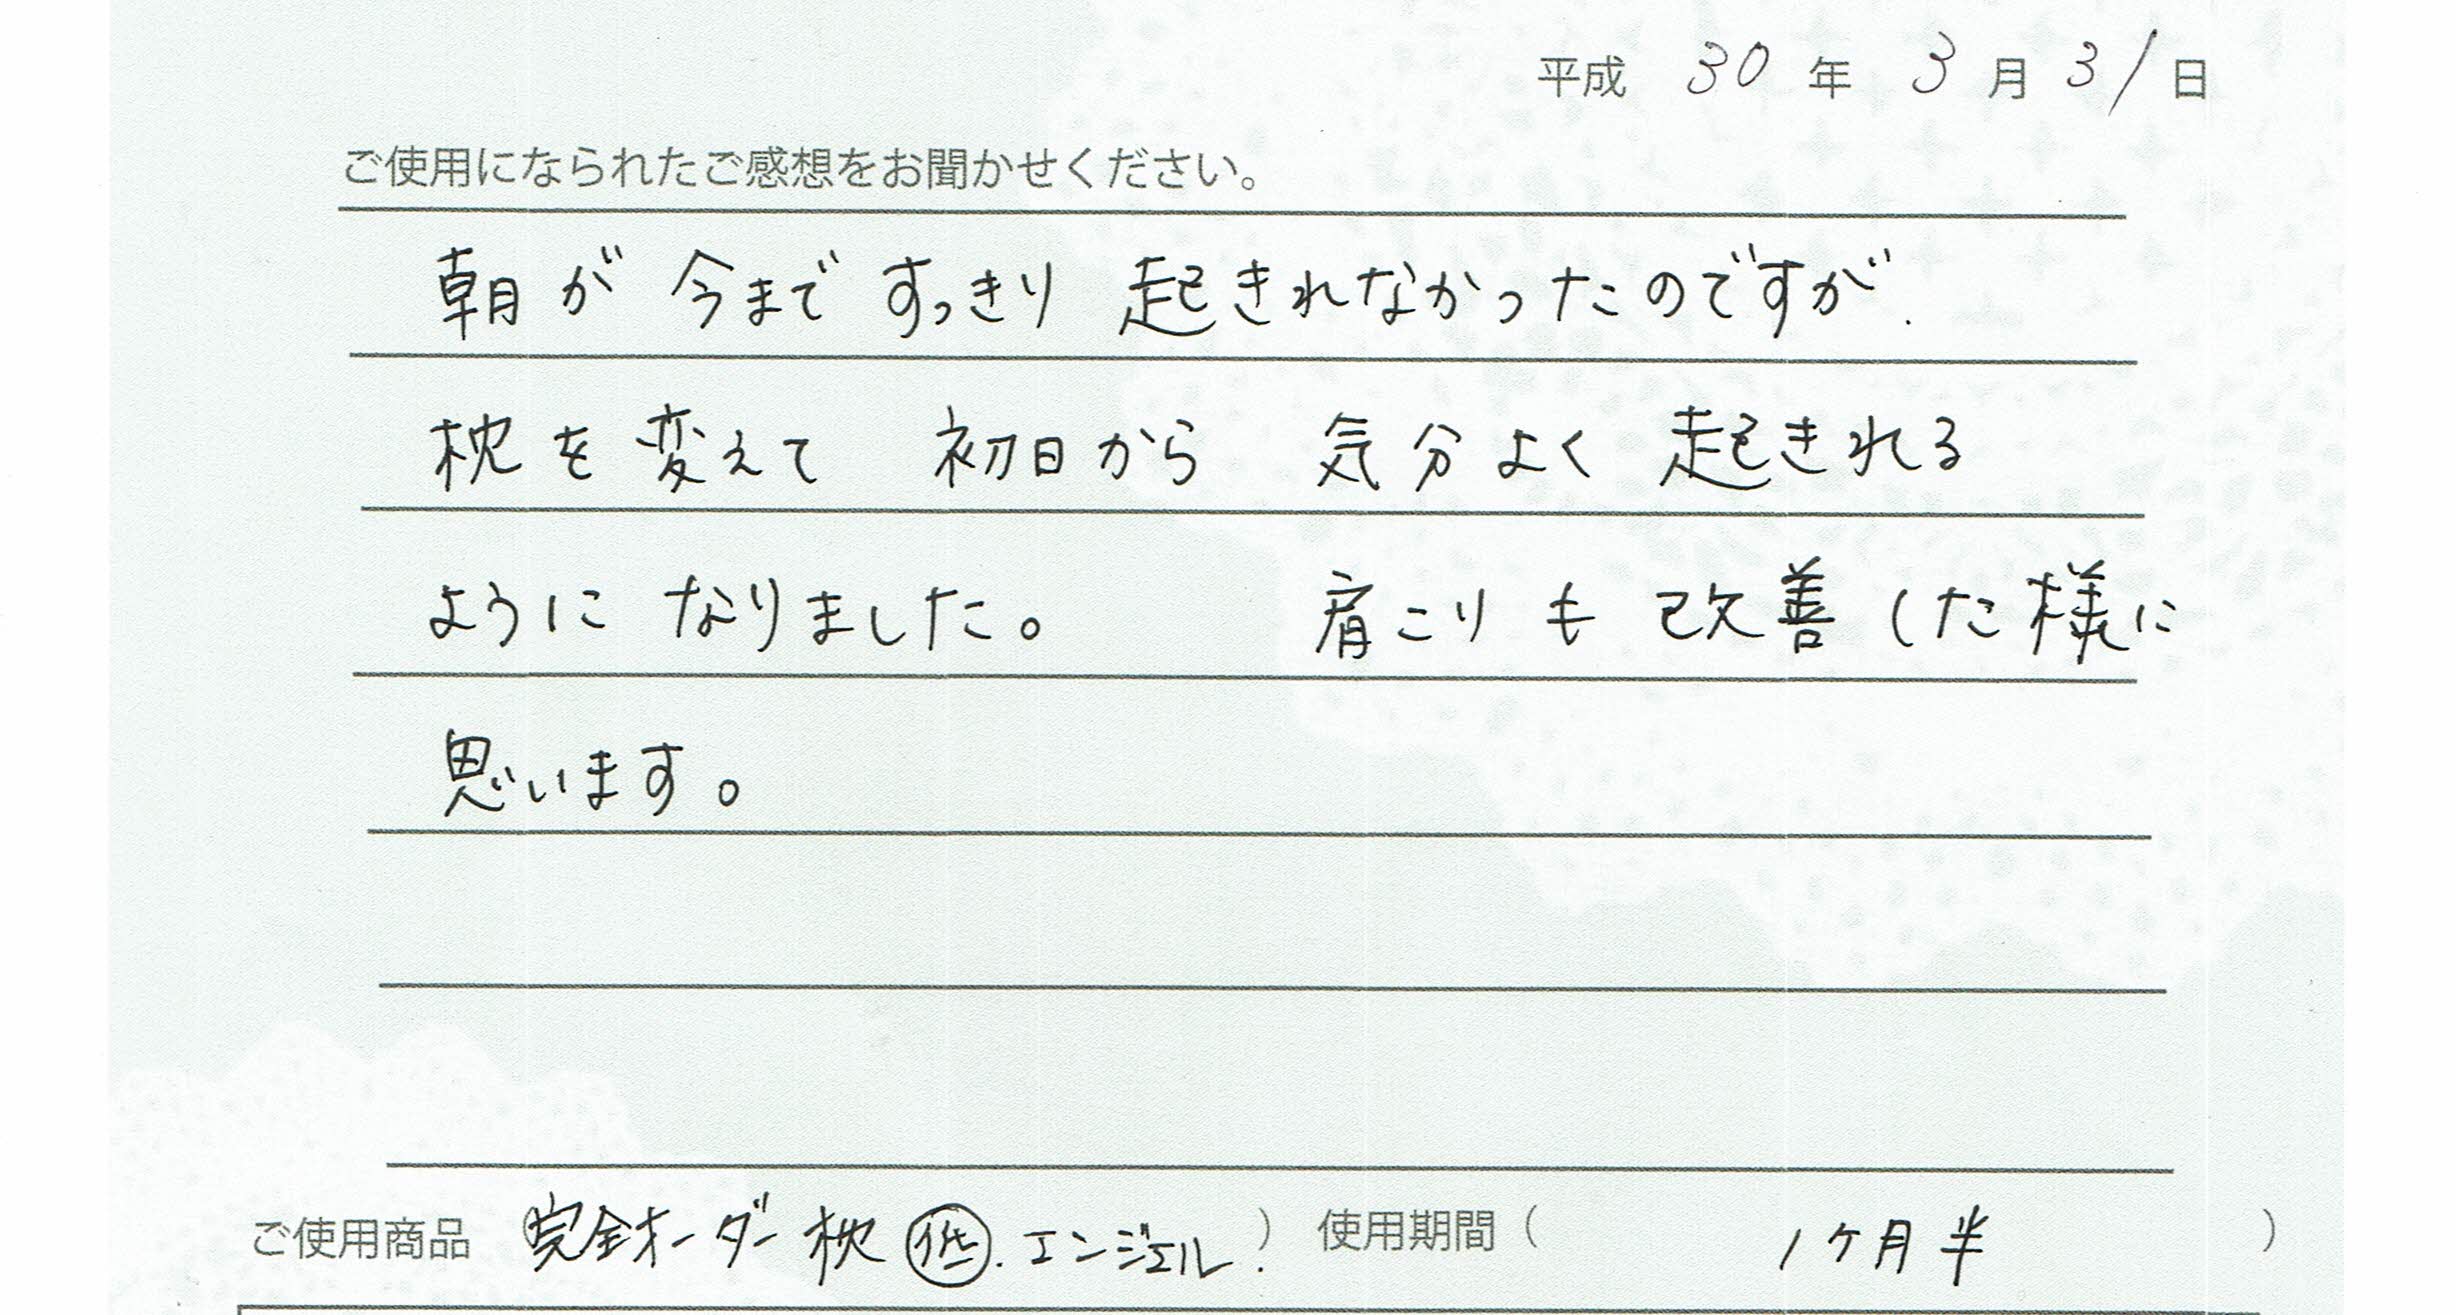 平成 30 年 3 月 31 日
ご使用になられたご感想をお聞かせください。
朝が 今まで すっきり 起きれなかったのですが.
枕を 変えて 初日から 気分よく 起きれる
ように なりました。 肩こり も 改善した様に
思います。
ご使用商品 (完全オーダー枕 低.エンジェル.) 使用期間( 1ヶ月半 )